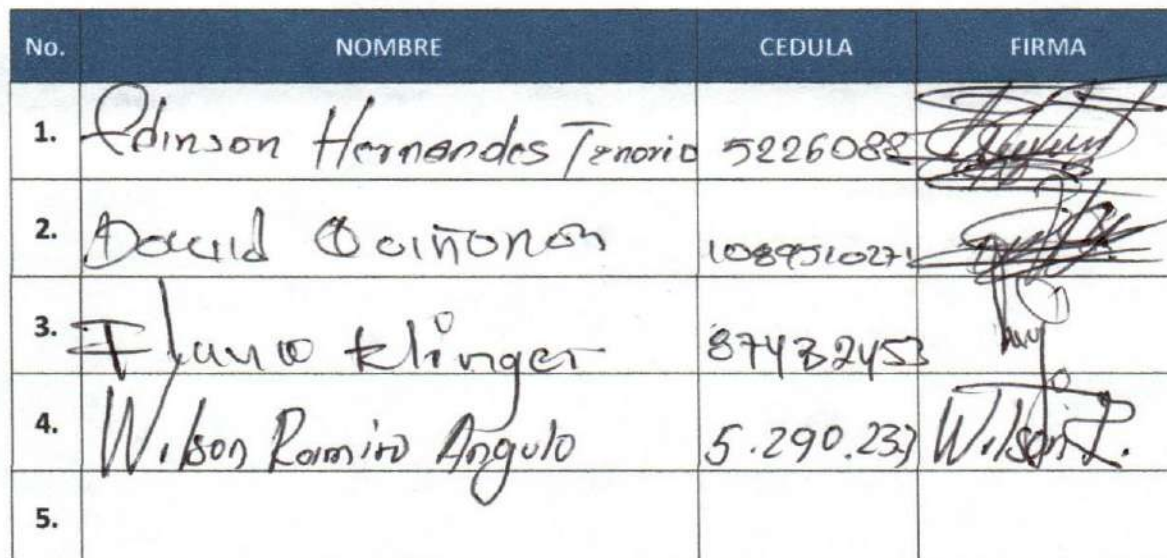 No. NOMBRE CEDULA FIRMA
1. Edinson Hernandes Tenorio 5226088
2. David Quiñonon 1089510271
3. Flavio Klinger 87432453
4. Wilson Ramiro Angulo 5.290.233 Wilson R.
5.